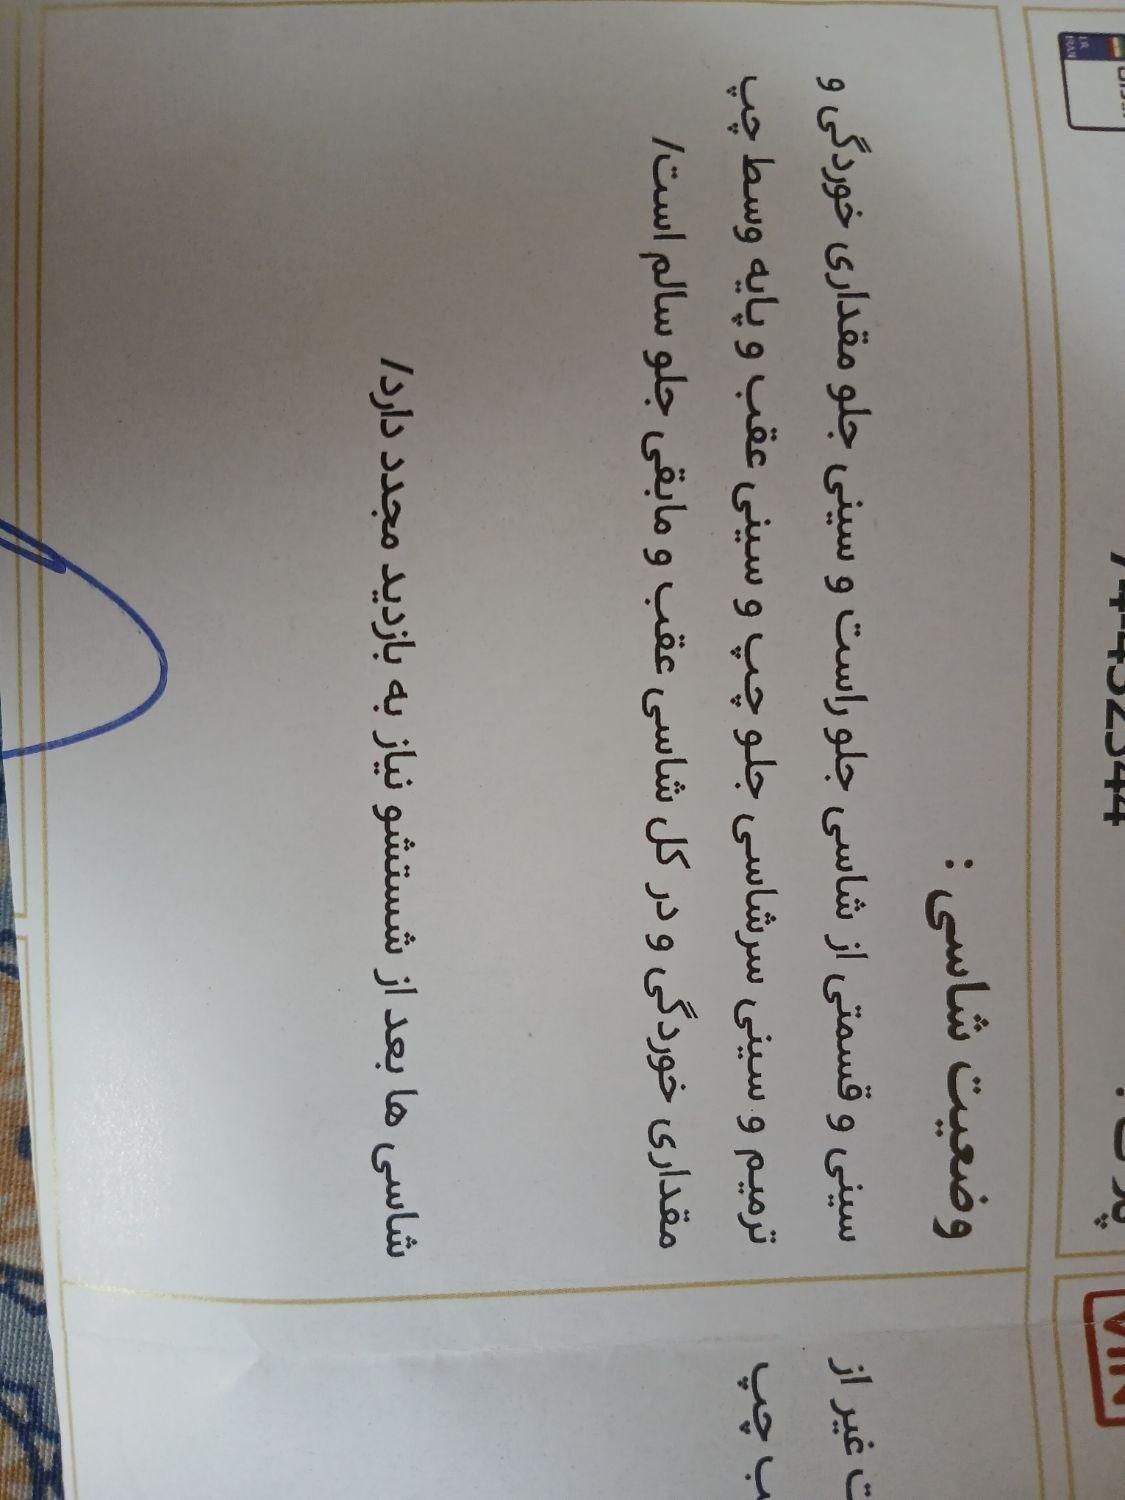 I.R.
IRAN
74-432344
وضعیت شاسی :
سینی و قسمتی از شاسی جلو راست و سینی جلو مقداری خوردگی و
ترمیم و سینی سرشاسی جلو چپ و سینی عقب و پایه وسط چپ
مقداری خوردگی و در کل شاسی عقب و مابقی جلو سالم است/
شاسی ها بعد از شستشو نیاز به بازدید مجدد دارد/
VIN
غیر از
چپ